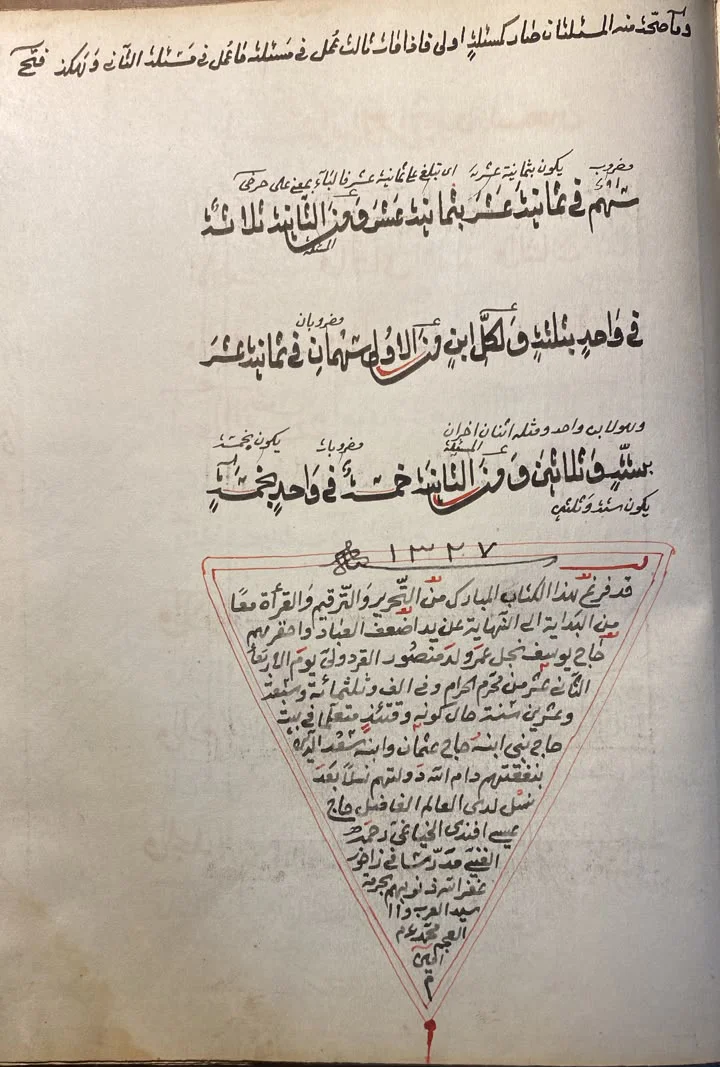 وما صحّت منه المسئلتان صار كمسئلةٍ اولى فاذا مات ثالث عُمل فى مسئلته ما عُمل فى مسئلة الثّانى وَهٰكذ فتّح
مضروب يكون بثمانية عشر اى تبلغ ثمانية عشر فالباء بمعنى على
سَهْم فى ثمانيةَ عَشَرَ بثمانيةَ عَشَرَ وَمِنَ الثّانيةِ ثلاثةٌ
المسئلة
مضروبان
فى وَاحدٍ بثلثةٍ وَلكلّ ابنٍ مِنَ الاوُلى سَهْمانِ فى ثمانيةَ عشرَ
وهو لابن واحد ومثله اثنان اخران المسئلة مضروبات يكون بخمسة
بستّةٍ وَثلاثينَ وَمِنَ الثّانيةِ خمسةٌ فى وَاحدٍ بخمسةٍ
يكون ستة وثلثين
١٣٢٧
قد فرغ هذا الكتاب المبارك من التّحرير وَالتّرقيم وَالقرأة معًا
من البداية الى النّهاية عن يد اضعف العباد واحقرهم
حاج يوسف نجل عمر ولد منصُور القردولى يومَ الاربعاء
الثّانى عشر من محرّم الحرام وفى الف وثلثمائة وسبعة
وعشرين سنة حال كونه وقتئذٍ متعلّمًا فى بيت
حاج نبى ابنهُ حاج عثمان وابنه سَعْد الدين
بنفقتهم دام الله دَولتهم نسلًا بَعْدَ
نسْل لدى العالم الفاضل حاج
عيسى افندى
مدرّسًا فى زاخو
غفر الله ذنوبهم بحرمة
سيد العرب وا
العجم محمّد عم
آمين
م